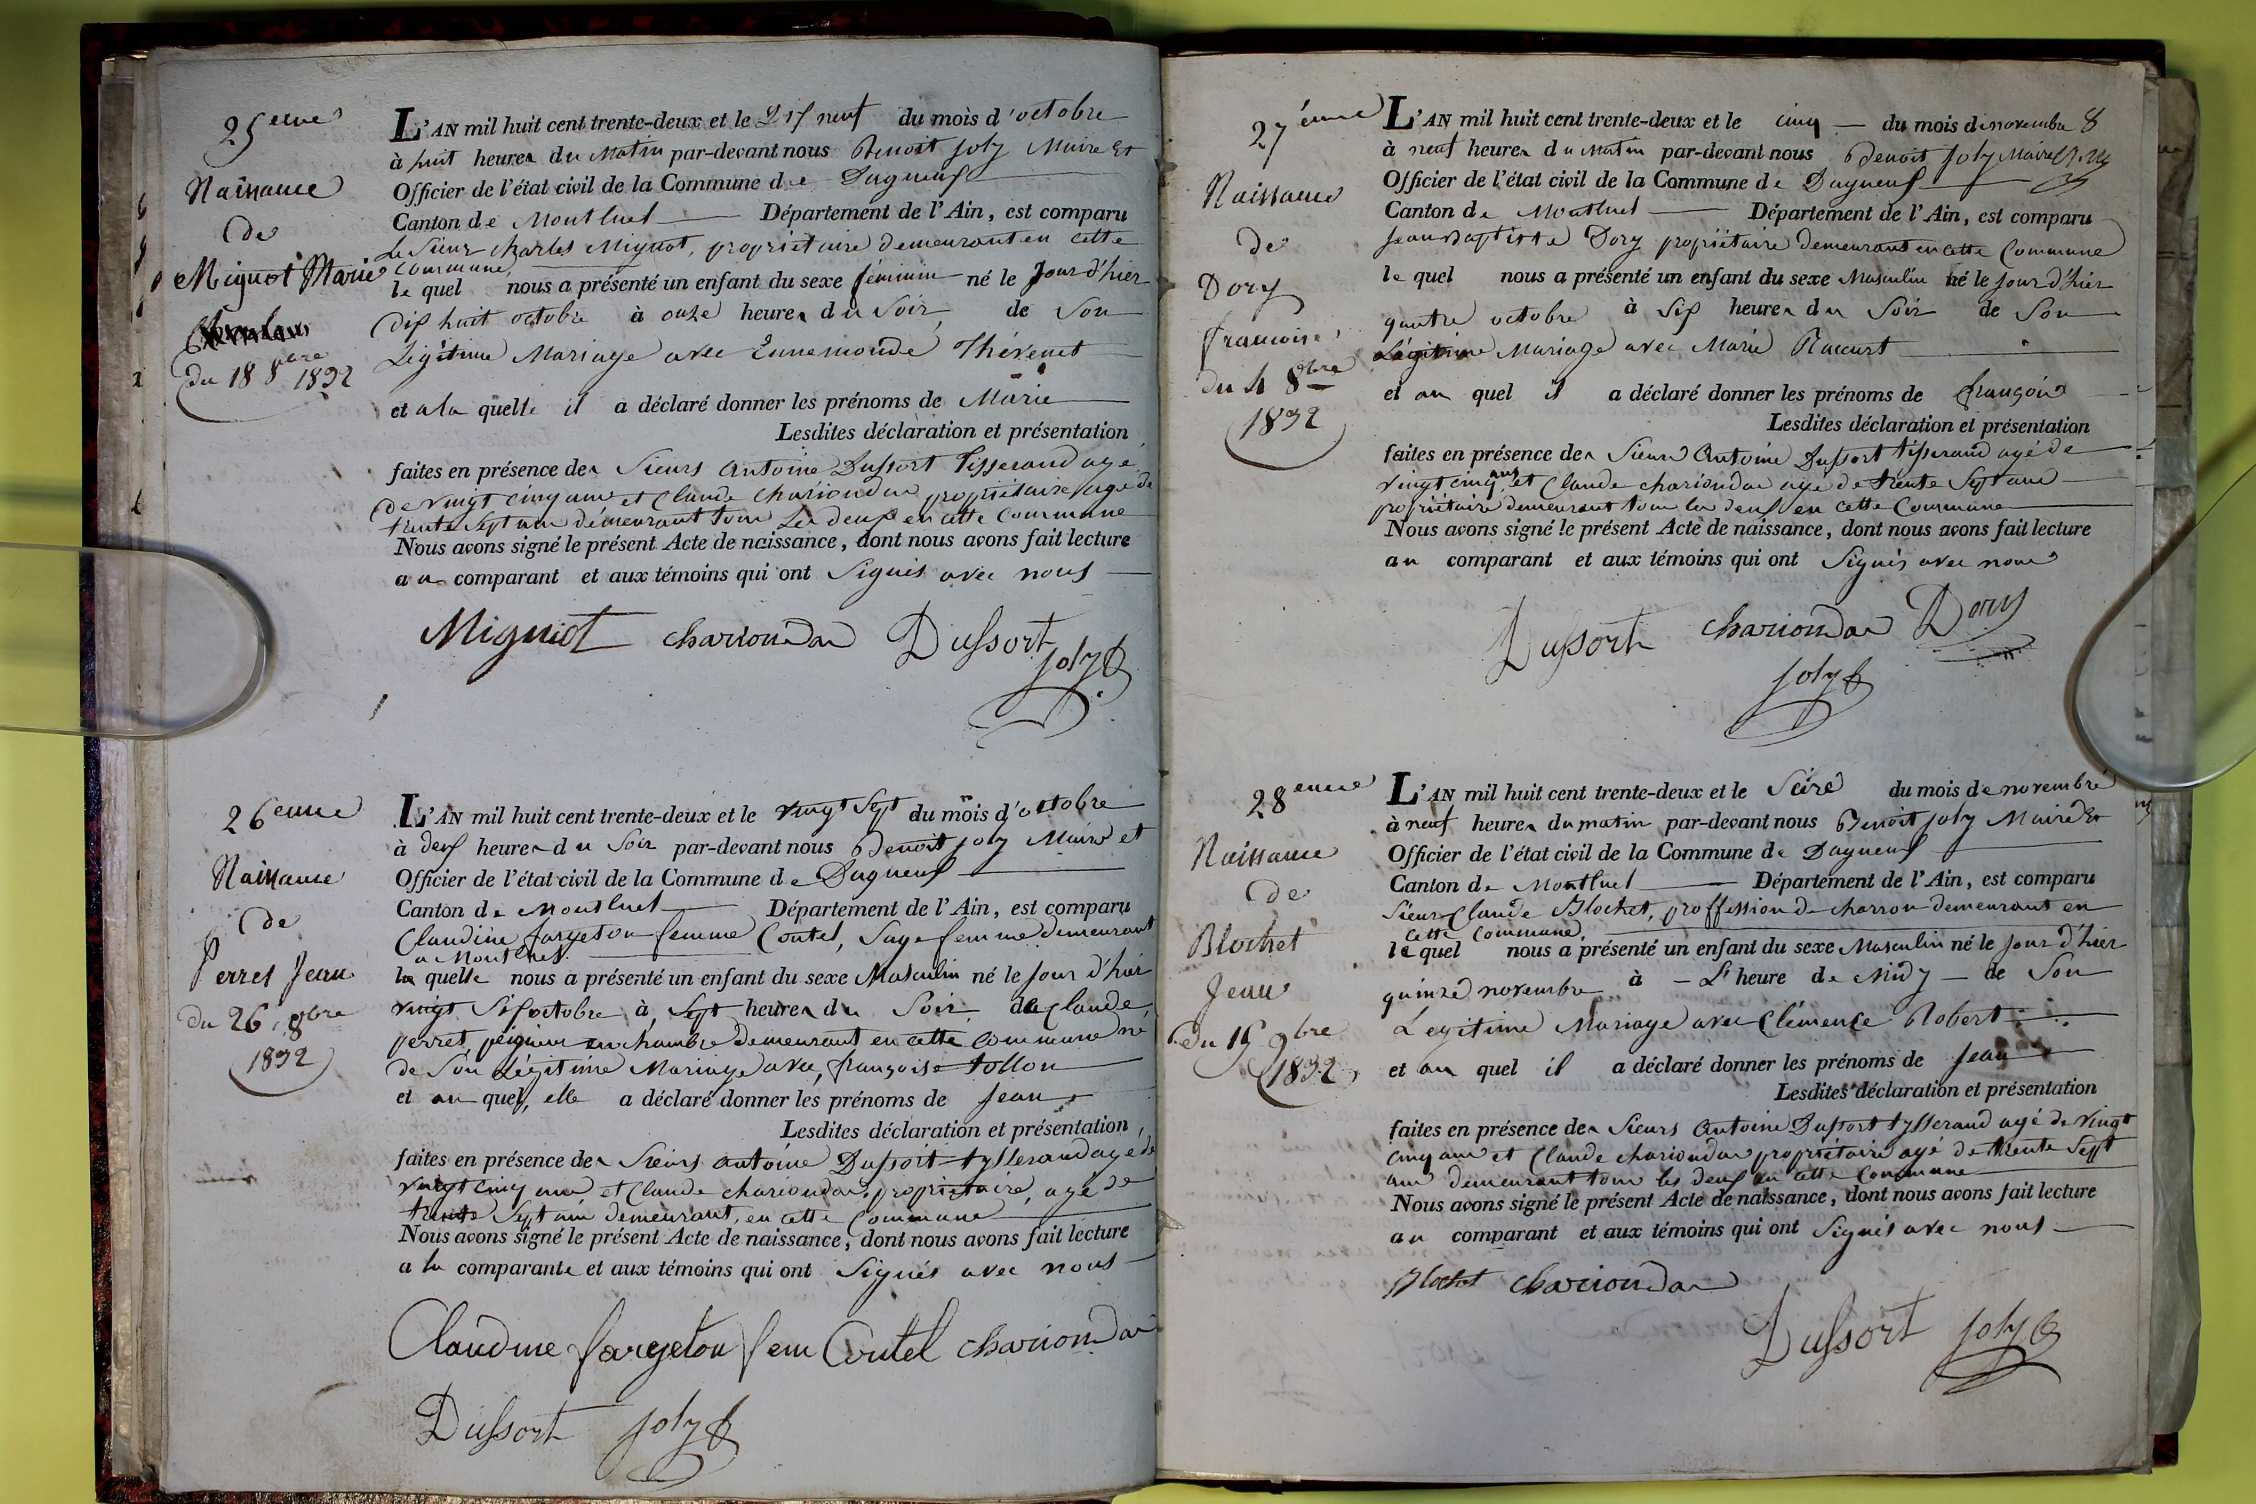 25eme
Naissance
de
Mignot Marie
du 18 8bre 1832
L'AN mil huit cent trente-deux et le dix neuf du mois d'octobre
à huit heures du Matin par-devant nous Benoit Joly Maire Et
Officier de l'état civil de la Commune de Dagneux
Canton de Montluel Département de l'Ain, est comparu
Le Sieur Charles Mignot, propriétaire demeurant en cette
Commune,
le quel nous a présenté un enfant du sexe féminin né le Jour d'hier
dix huit octobre à onze heures du Soir, de Son
Légitime Mariage avec Ennemonde Thévenet
et a la quelle il a déclaré donner les prénoms de Marie
Lesdites déclaration et présentation
faites en présence des Sieurs Antoine Dussort Tisserand age
de vingt cinq ans et Claude Chariondas propriétaire age de
trente Sept ans demeurant tous Les deux en cette Commune
Nous avons signé le présent Acte de naissance, dont nous avons fait lecture
au comparant et aux témoins qui ont Signés avec nous
Mignot Chariondas Dussort
Joly
26eme
Naissance
de
Perret Jean
du 26 8bre
1832
L'AN mil huit cent trente-deux et le vingt Sept du mois d'octobre
à deux heures du Soir par-devant nous Benoit Joly Maire et
Officier de l'état civil de la Commune de Dagneux
Canton de Montluel Département de l'Ain, est comparu
Claudine fargeton femme Coutel, Sage femme demeurant
a Montluel.
la quelle nous a présenté un enfant du sexe Masculin né le Jour d'hier
vingt Six octobre à Sept heures du Soir de Claude
perret, peigneur en chambre demeurant en cette commune né
de Son Légitime Mariage avec, françoise tollon
et au quel, elle a déclaré donner les prénoms de Jean
Lesdites déclaration et présentation,
faites en présence des Sieurs antoine Dussort tysserand age de
vingt cinq ans, et Claude chariondas, propriétaire, agé de
trente Sept ans demeurant, en cette Commune
Nous avons signé le présent Acte de naissance, dont nous avons fait lecture
a la comparante et aux témoins qui ont Signés avec nous
Claudine fargeton fem Coutel chariondas
Dussort Joly
27éme
Naissance
de
Dory
françois
du 4 8bre
1832
L'AN mil huit cent trente-deux et le cinq du mois de novembre
à neuf heures du Matin par-devant nous Benoit Joly Maire
Officier de l'état civil de la Commune de Dagneux
Canton de Montluel Département de l'Ain, est comparu
Jean Baptiste Dory propriétaire demeurant en cette Commune
le quel nous a présenté un enfant du sexe Masculin né le Jour d'hier
quatre octobre à Six heures du Soir de Son
Légitime Mariage avec Marie
et au quel il a déclaré donner les prénoms de françois
Lesdites déclaration et présentation
faites en présence des Sieurs Antoine Dussort tisserand agé de
vingt cinq ans et Claude chariondas agé de trente Sept ans
propriétaire demeurant tous les deux en cette Commune
Nous avons signé le présent Acte de naissance, dont nous avons fait lecture
au comparant et aux témoins qui ont Signés avec nous
Dussort chariondas Dory
Joly
28eme
Naissance
de
Blochet
Jean
du 15 9bre
1832
L'AN mil huit cent trente-deux et le Seize du mois de novembre
à neuf heures du matin par-devant nous Benoit Joly Maire Et
Officier de l'état civil de la Commune de Dagneux
Canton de Montluel Département de l'Ain, est comparu
Sieur Claude Blochet, proffession de charron demeurant en
cette Commune,
le quel nous a présenté un enfant du sexe Masculin né le Jour d'hier
quinze novembre à L'heure de Midy de Son
Legitime Mariage avec Clémence Robert
et au quel il a déclaré donner les prénoms de Jean
Lesdites déclaration et présentation
faites en présence des Sieurs Antoine Dussort tysserand agé de vingt
cinq ans et Claude chariondas propriétaire agé de trente Sept
ans demeurant tous les deux en cette Commune
Nous avons signé le présent Acte de naissance, dont nous avons fait lecture
au comparant et aux témoins qui ont Signés avec nous
Blochet chariondas
Dussort Joly